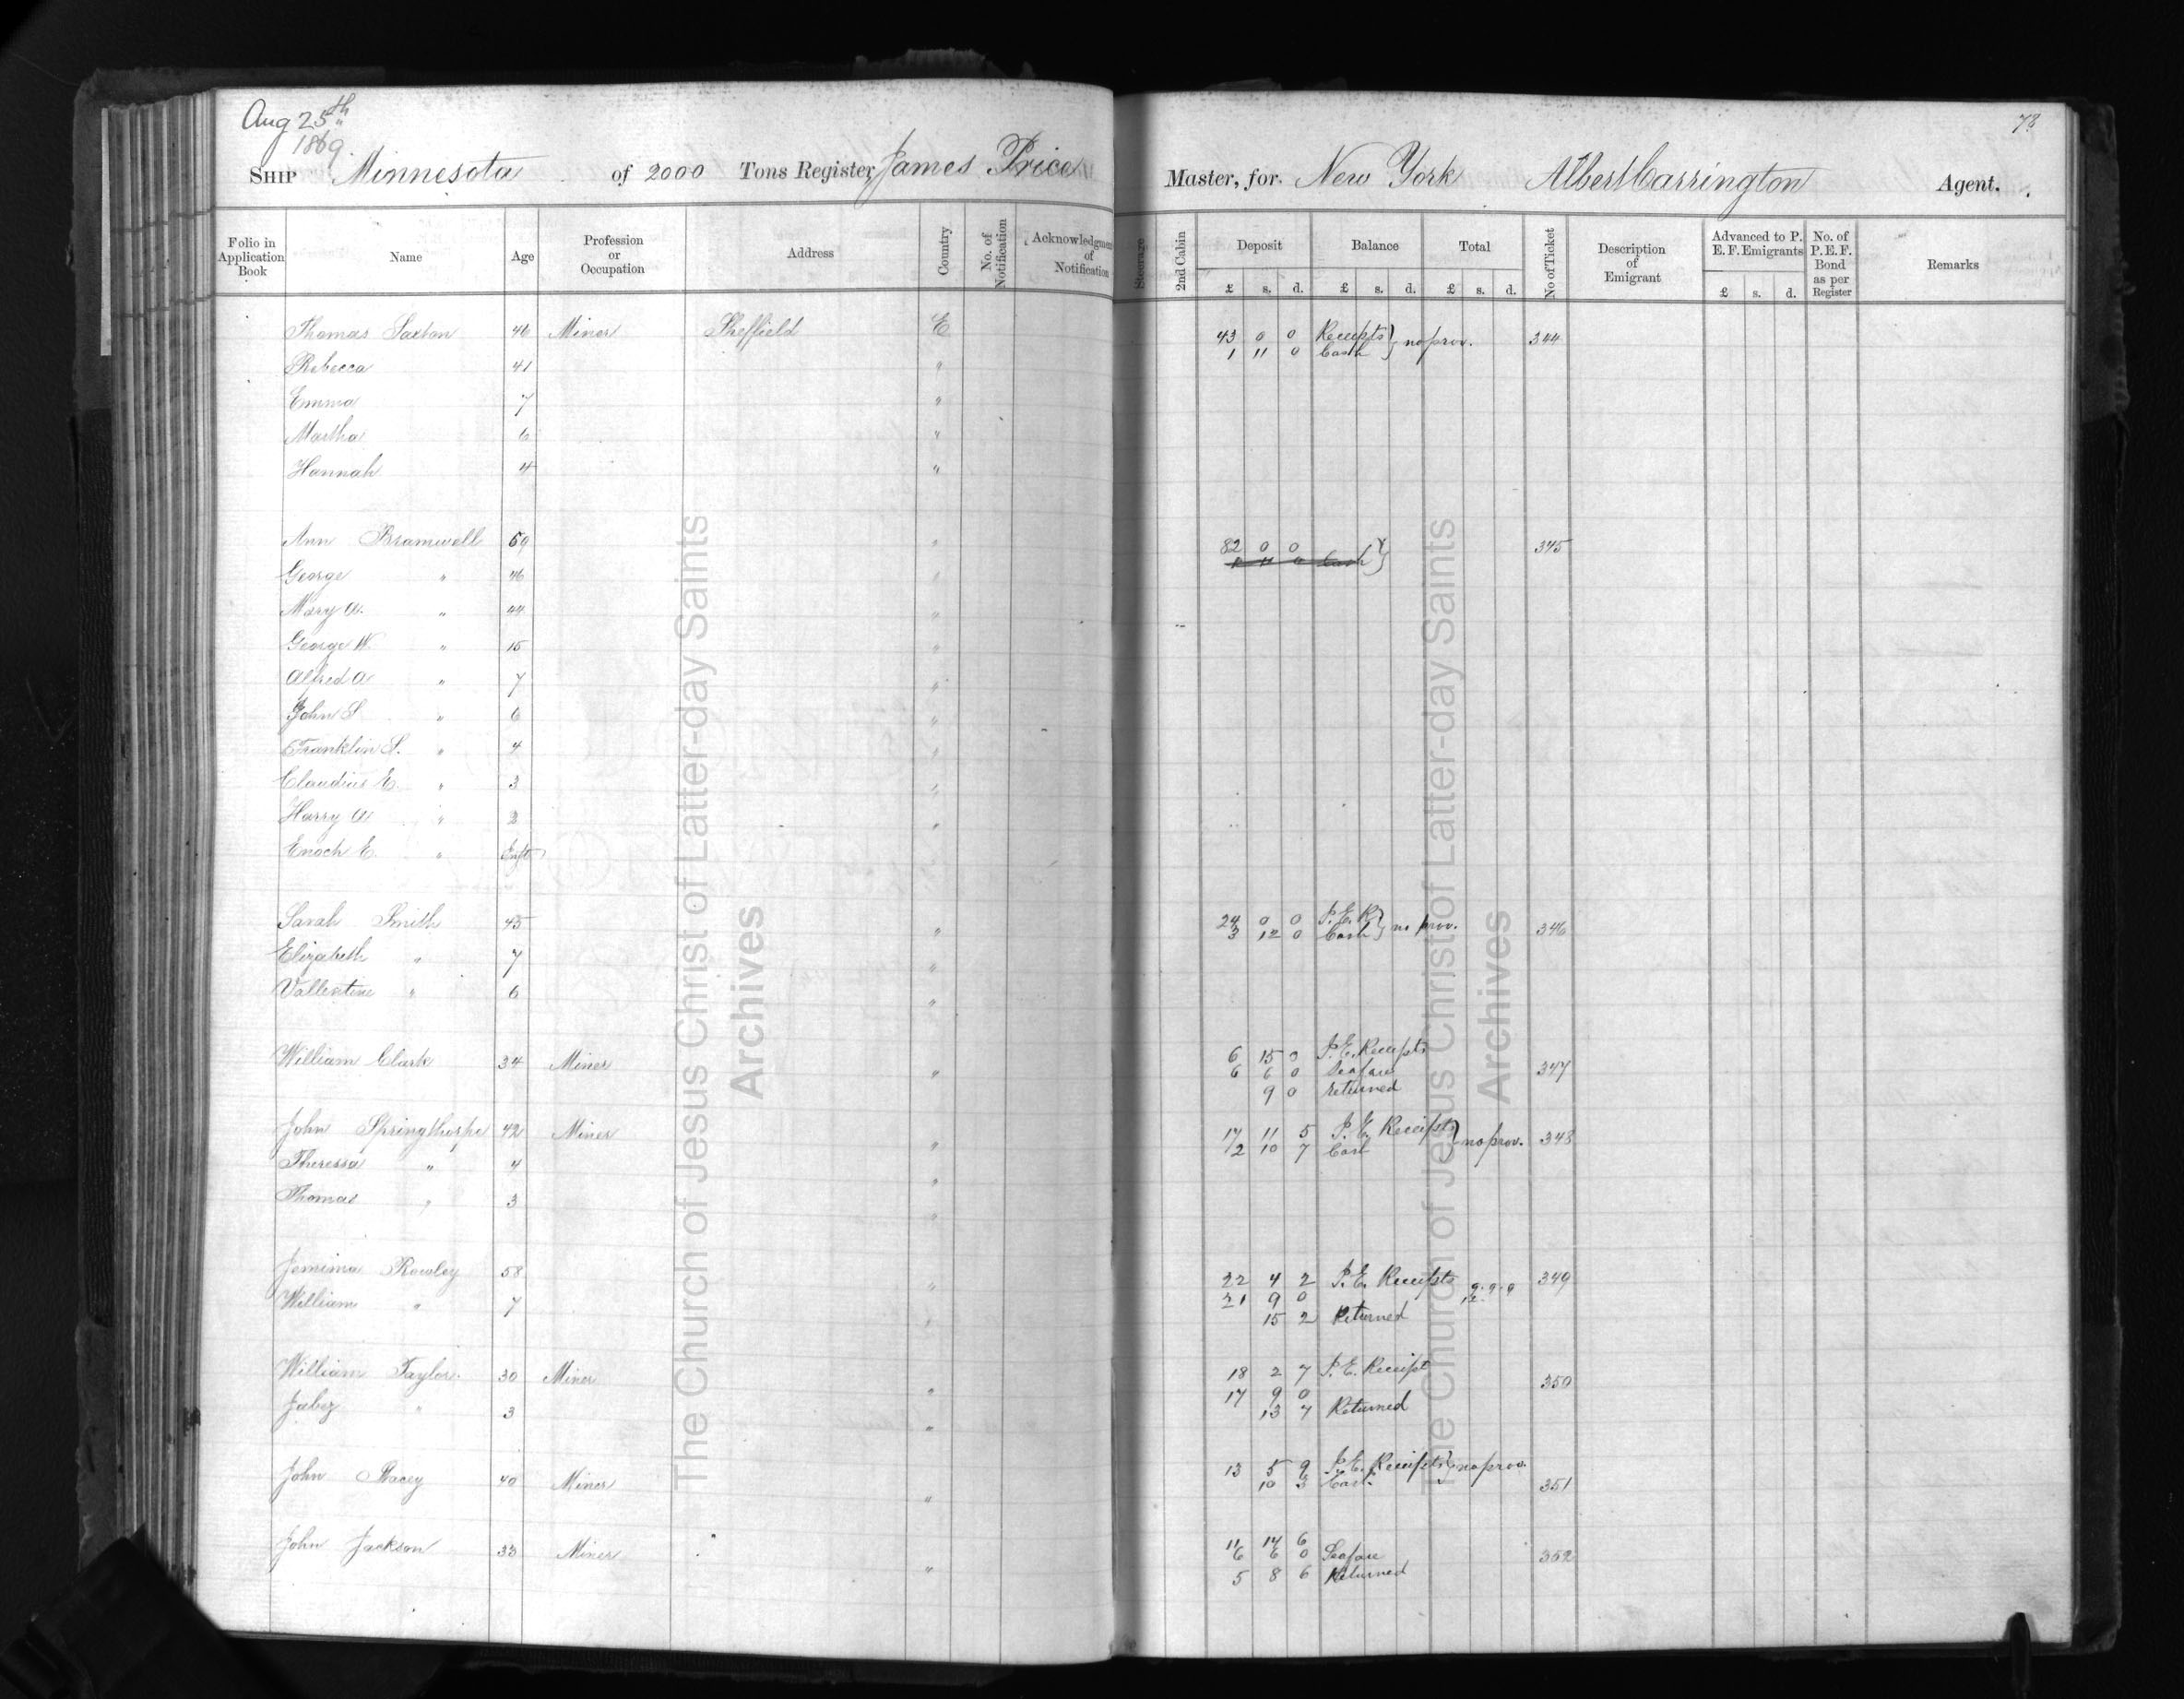 Aug 25th
1869.
Ship Minnesota of 2000 Tons Register, James Price Master, for New York Albert Carrington Agent.
78
Folio in Application Book Name Age Profession or Occupation Address Country No. of Notification Acknowledgment of Notification Steerage 2nd Cabin Deposit £ s. d. Balance £ s. d. Total £ s. d. No of Ticket Description of Emigrant Advanced to P. E. F. Emigrants £ s. d. No. of P. E. F. Bond as per Register Remarks
Thomas Saxton 46 Miner Sheffield E 43 0 0 Receipts } no prov. 344
1 11 0 Cash }
Rebecca 41 "
Emma 7 "
Martha 6 "
Hannah 4 "
Ann Bramwell 69 " 82 0 0 } 345
1 11 0 Cash }
George " 46 "
Mary A. " 44 "
George W. " 15 "
Alfred A " 7 "
John S " 6 "
Franklin S. " 4 "
Claudius E. " 3 "
Harry A " 2 "
Enoch E. " Inft "
Sarah Smith 45 " 24 0 0 P.E.R } no prov. 346
3 12 0 Cash }
Elizabeth " 7 "
Vallentine " 6 "
William Clark 34 Miner " 6 15 0 P.E. Receipts 347
6 6 0 Seafare
9 0 returned
John Springthorpe 42 Miner " 17 11 5 P.E. Receipts } no prov. 348
2 10 7 Cash
Theressa " 4 "
Thomas " 3 "
Jemima Rowley 58 " 22 4 2 P.E. Receipts 349
William " 7 " 21 9 0
15 2 Returned
William Taylor. 30 Miner " 18 2 7 P.E. Receipt 350
Jabez " 3 " 17 9 0
13 7 Returned
John Stacey 40 Miner " 13 5 9 P.E. Receipts } no prov. 351
10 3 Cash
John Jackson 33 Miner " 11 14 6 352
6 6 0 Seafare
5 8 6 Returned
The Church of Jesus Christ of Latter-day Saints
Archives
The Church of Jesus Christ of Latter-day Saints
Archives